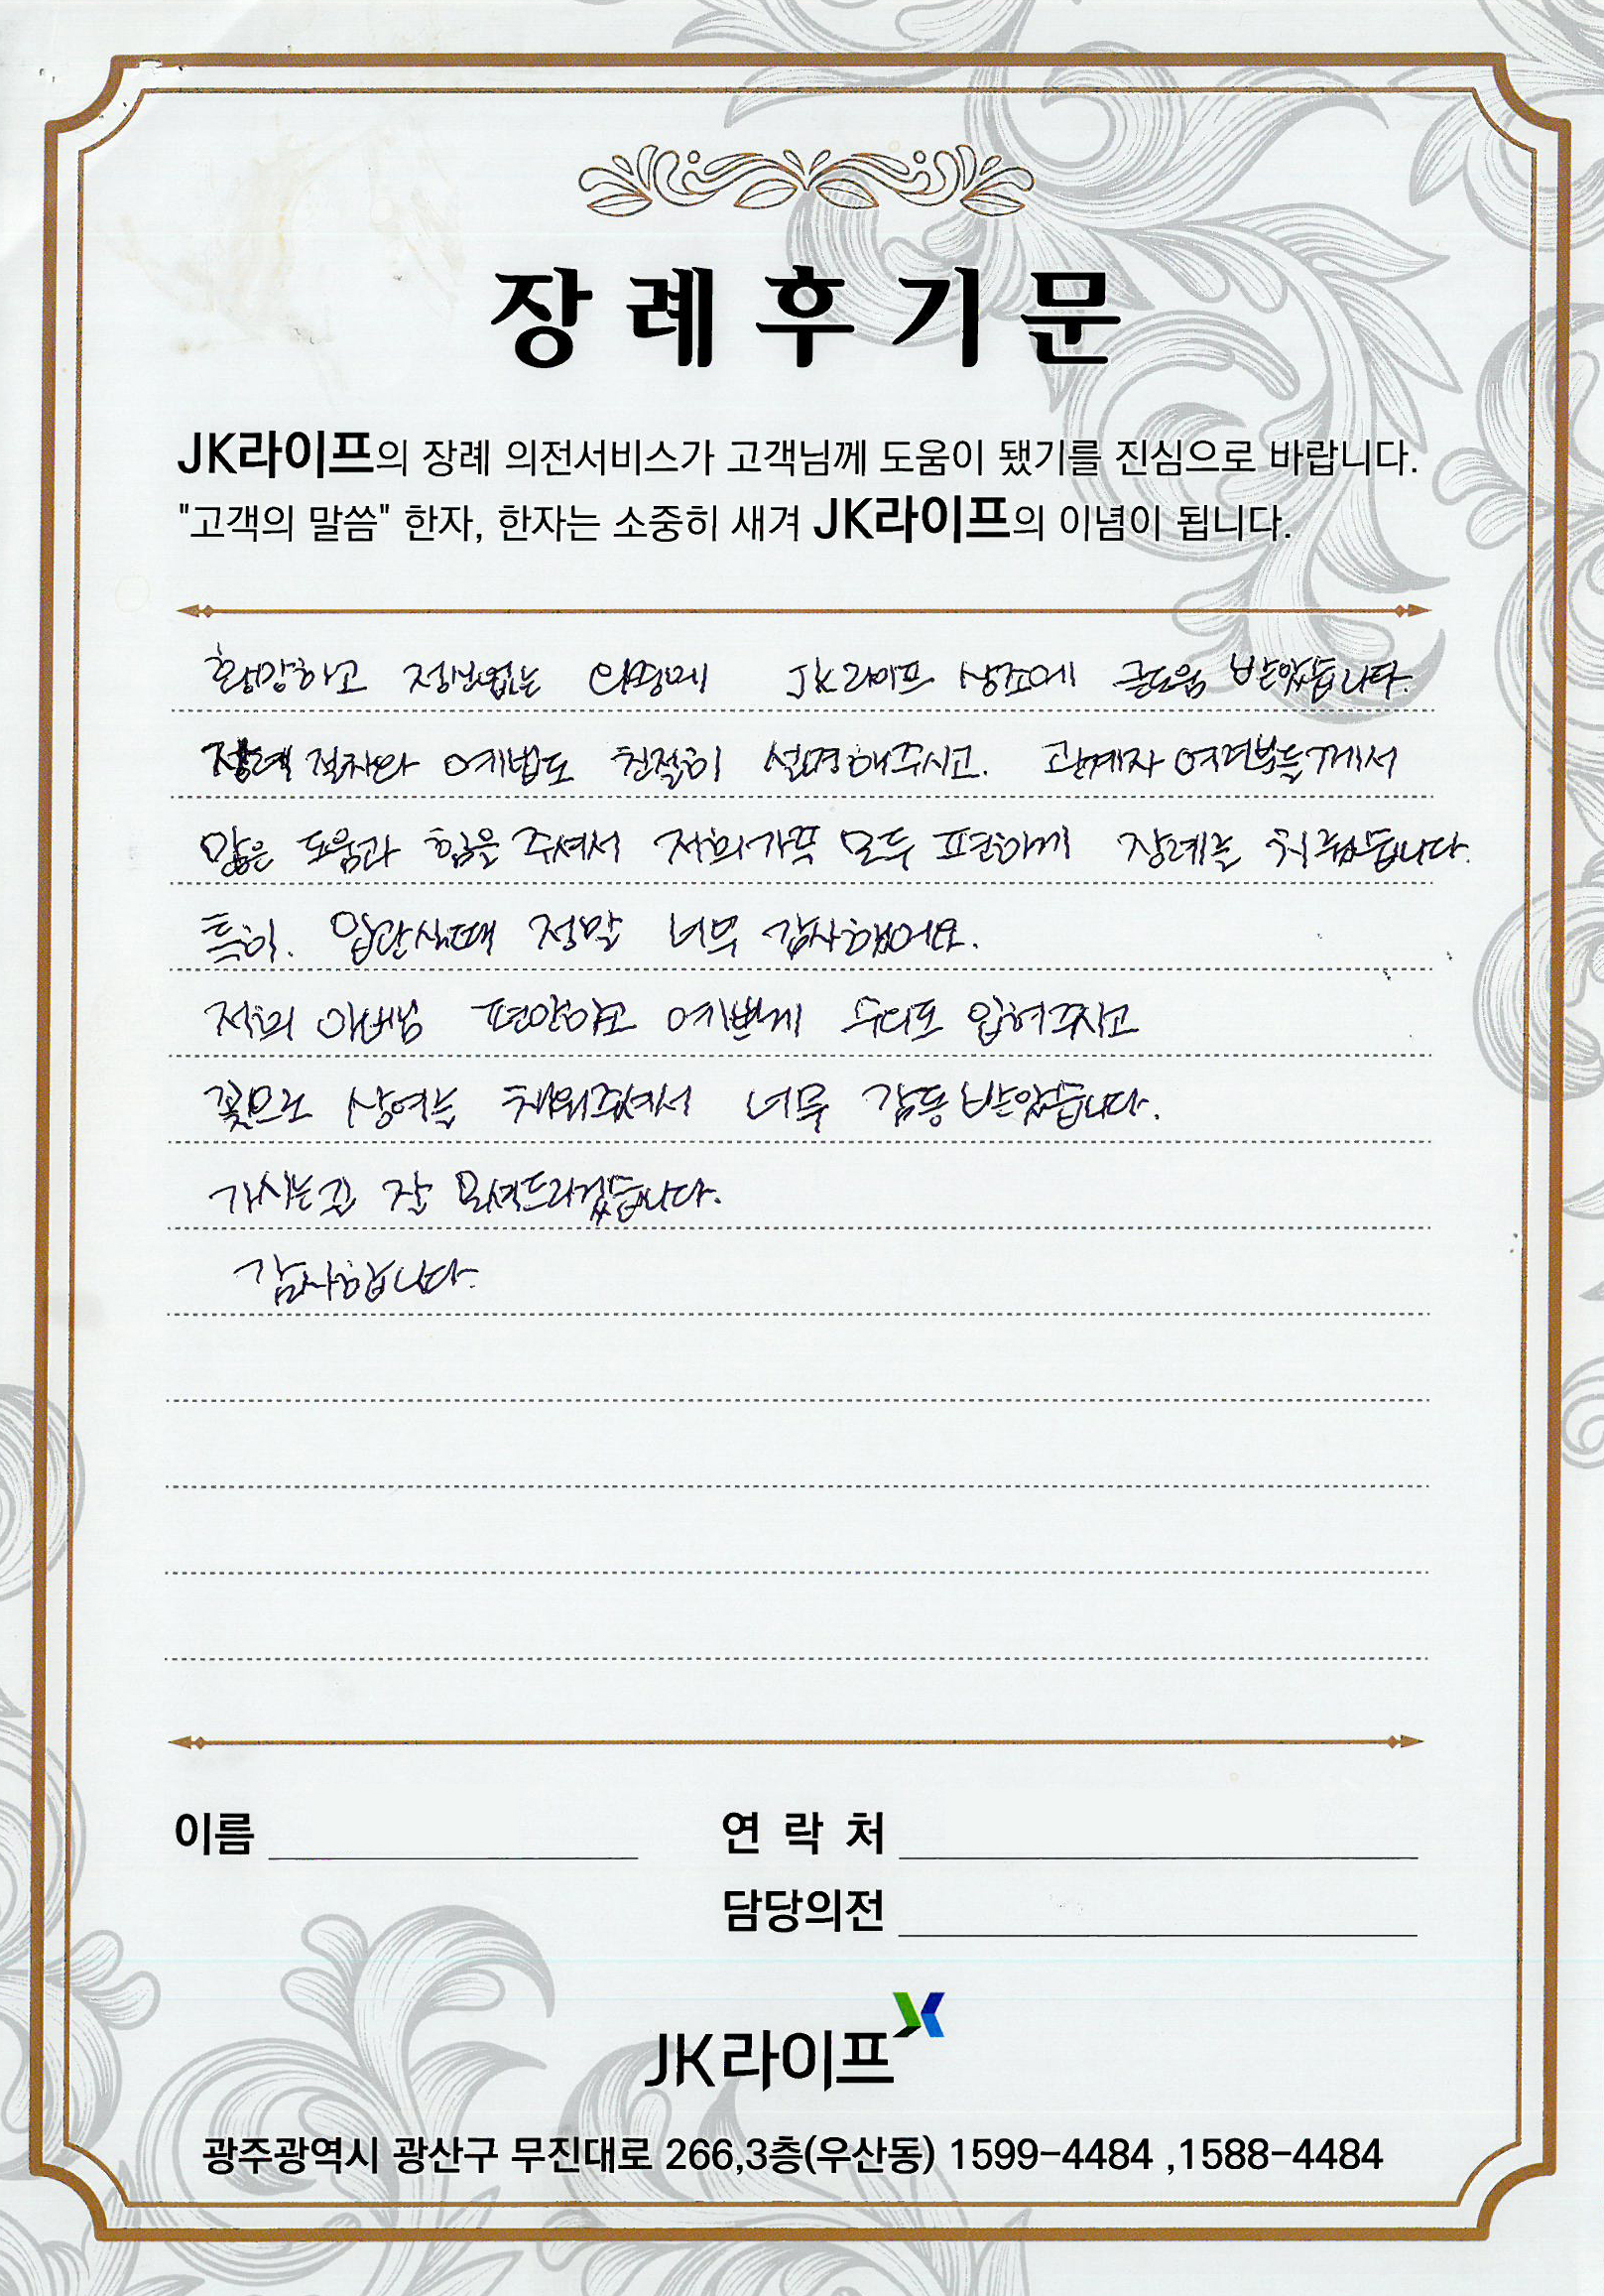 장례후기문
JK라이프의 장례 의전서비스가 고객님께 도움이 됐기를 진심으로 바랍니다.
"고객의 말씀" 한자, 한자는 소중히 새겨 JK라이프의 이념이 됩니다.
황망하고 정신없는 와중에 JK라이프 상조에 큰도움 받았습니다.
장례 절차와 예법도 친절히 설명해주시고. 관계자 여러분들께서
많은 도움과 힘을 주셔서 저희가족 모두 편하게 장례를 치뤘습니다.
특히. 입관실때 정말 너무 감사했어요.
저희 아버님 편안하고 예쁘게 수의도 입혀주시고
꽃으로 상여를 채워주셔서 너무 감동 받았습니다.
가시는길 잘 모셔드리겠습니다.
감사합니다.
이름
연 락 처
담당의전
JK라이프
광주광역시 광산구 무진대로 266,3층(우산동) 1599-4484 ,1588-4484